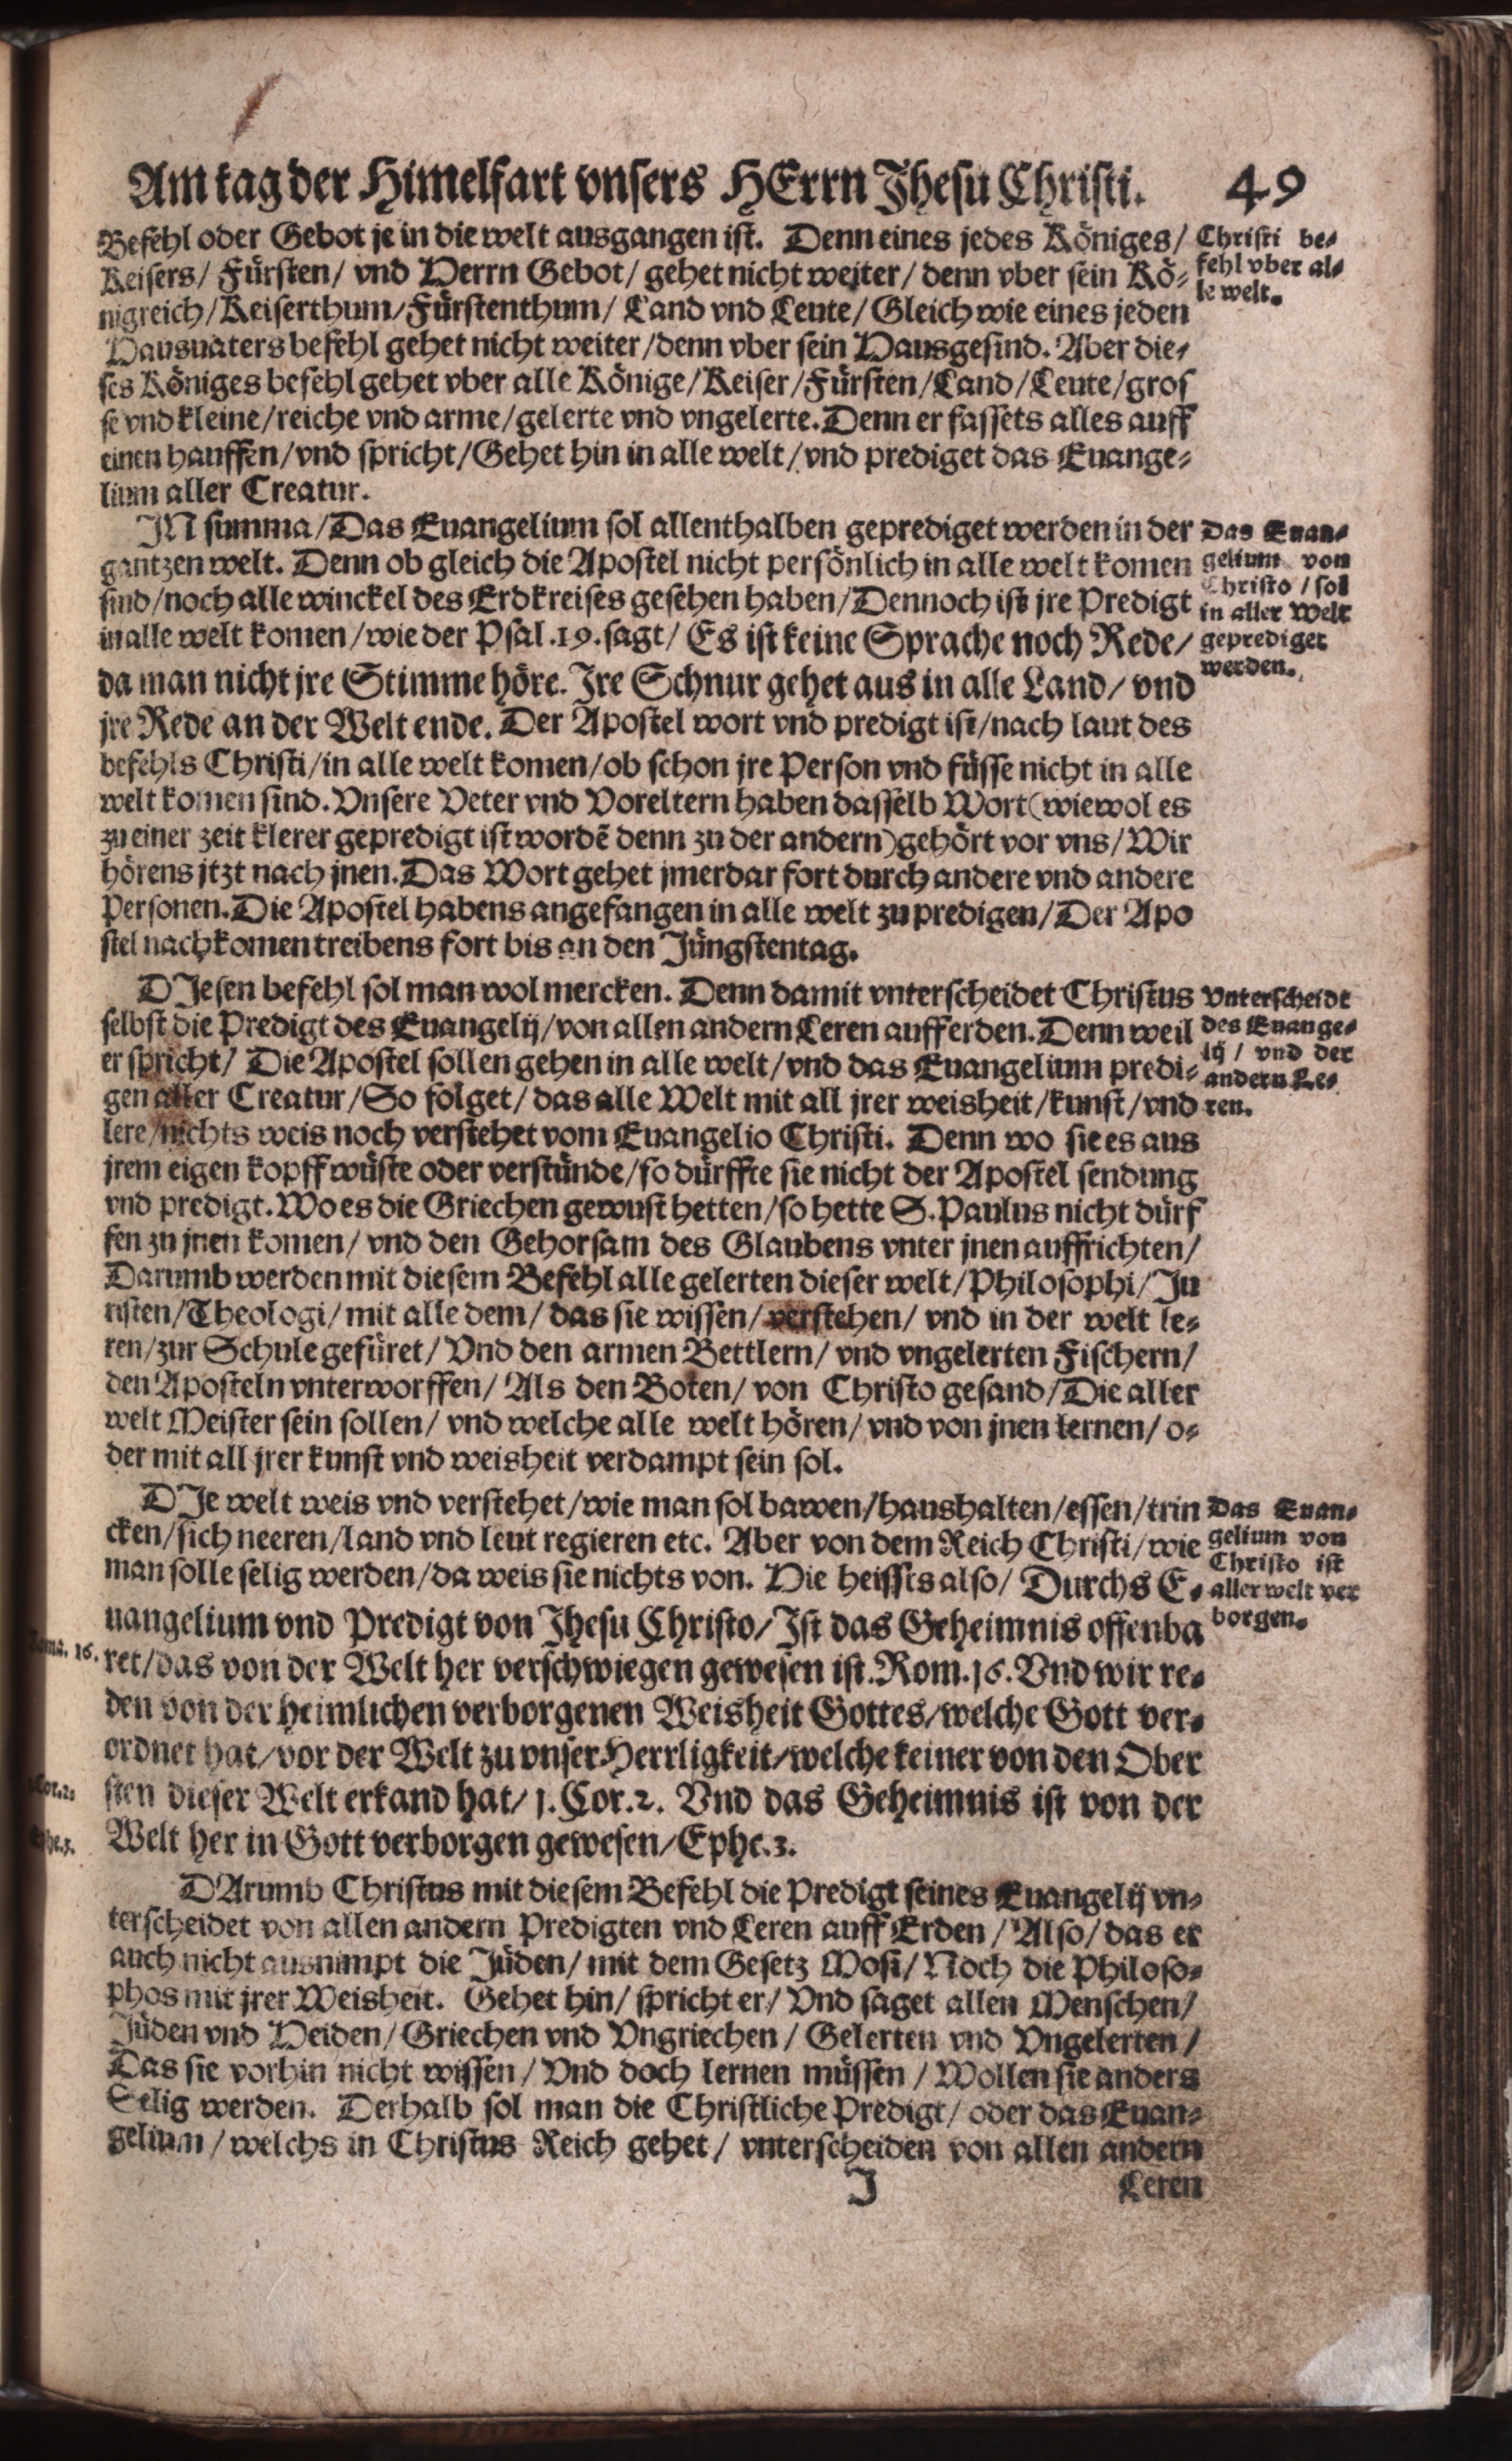 Am tag der Himelfart vnsers HErrn Jhesu Christi. 49
Befehl oder Gebot je in die welt ausgangen ist. Denn eines jedes Königes/
Keisers/ Fürsten/ vnd Herrn Gebot/ gehet nicht weiter/ denn vber sein Kö-
nigreich/ Keiserthum/ Fürstenthum/ Land vnd Leute/ Gleich wie eines jeden
Hausuaters befehl gehet nicht weiter/ denn vber sein Hausgesind. Aber die-
ses Königes befehl gehet vber alle Könige/ Keiser/ Fürsten/ Land/ Leute/ gros
se vnd kleine/ reiche vnd arme/ gelerte vnd vngelerte. Denn er fassets alles auff
einen hauffen/ vnd spricht/ Gehet hin in alle welt/ vnd prediget das Euange-
lium aller Creatur.
Christi be-
fehl vber al-
le welt.
JN summa/ Das Euangelium sol allenthalben geprediget werden in der
gantzen welt. Denn ob gleich die Apostel nicht persönlich in alle welt komen
sind/ noch alle winckel des Erdkreises gesehen haben/ Dennoch ist jre Predigt
in alle welt komen/ wie der Psal. 19. sagt/ Es ist keine Sprache noch Rede/
da man nicht jre Stimme höre. Jre Schnur gehet aus in alle Land/ vnd
jre Rede an der Welt ende. Der Apostel wort vnd predigt ist/ nach laut des
befehls Christi/ in alle welt komen/ ob schon jre Person vnd füsse nicht in alle
welt komen sind. Vnsere Veter vnd Voreltern haben dasselb Wort (wiewol es
zu einer zeit klerer gepredigt ist wordē denn zu der andern) gehört vor vns/ Wir
hörens jtzt nach jnen. Das Wort gehet jmerdar fort durch andere vnd andere
Personen. Die Apostel habens angefangen in alle welt zu predigen/ Der Apo
stel nachkomen treibens fort bis an den Jüngstentag.
Das Euan-
gelium von
Christo / sol
in aller Welt
geprediget
werden.
DJesen befehl sol man wol mercken. Denn damit vnterscheidet Christus
selbst die Predigt des Euangelij/ von allen andern Leren auff erden. Denn weil
er spricht/ Die Apostel sollen gehen in alle welt/ vnd das Euangelium predi-
gen aller Creatur/ So folget/ das alle Welt mit all jrer weisheit/ kunst/ vnd
lere/ nichts weis noch verstehet vom Euangelio Christi. Denn wo sie es aus
jrem eigen kopff wüste oder verstünde/ so dürffte sie nicht der Apostel sendung
vnd predigt. Wo es die Griechen gewust hetten/ so hette S. Paulus nicht dürf
fen zu jnen komen/ vnd den Gehorsam des Glaubens vnter jnen auffrichten/
Darumb werden mit diesem Befehl alle gelerten dieser welt/ Philosophi/ Ju
risten/ Theologi/ mit alle dem/ das sie wissen/ verstehen/ vnd in der welt le-
ren/ zur Schule gefüret/ Vnd den armen Bettlern/ vnd vngelerten Fischern/
den Aposteln vnterworffen/ Als den Boten/ von Christo gesand/ Die aller
welt Meister sein sollen/ vnd welche alle welt hören/ vnd von jnen lernen/ o-
der mit all jrer kunst vnd weisheit verdampt sein sol.
Vnterscheidt
des Euange-
lij / vnd der
andern Le-
ren.
DJe welt weis vnd verstehet/ wie man sol bawen/ haushalten/ essen/ trin
cken/ sich neeren/ land vnd leut regieren etc. Aber von dem Reich Christi/ wie
man solle selig werden/ da weis sie nichts von. Hie heissts also/ Durchs E-
uangelium vnd Predigt von Jhesu Christo/ Ist das Geheimnis offenba
ret/ das von der Welt her verschwiegen gewesen ist. Rom. 16. Vnd wir re-
den von der heimlichen verborgenen Weisheit Gottes/ welche Gott ver-
ordnet hat/ vor der Welt zu vnser Herrligkeit/ welche keiner von den Ober
sten dieser Welt erkand hat/ 1. Cor. 2. Vnd das Geheimnis ist von der
Welt her in Gott verborgen gewesen/ Ephe. 3.
Das Euan-
gelium von
Christo ist
aller welt ver
borgen.
16.
DArumb Christus mit diesem Befehl die Predigt seines Euangelij vn-
terscheidet von allen andern Predigten vnd Leren auff Erden/ Also/ das er
auch nicht ausnimpt die Jüden/ mit dem Gesetz Mosi/ Noch die Philoso-
phos mit jrer Weisheit. Gehet hin/ spricht er/ Vnd saget allen Menschen/
Jüden vnd Heiden/ Griechen vnd Vngriechen/ Gelerten vnd Vngelerten/
Das sie vorhin nicht wissen/ Vnd doch lernen müssen/ Wollen sie anders
Selig werden. Derhalb sol man die Christliche Predigt/ oder das Euan-
gelium/ welchs in Christus Reich gehet/ vnterscheiden von allen andern
J Leren